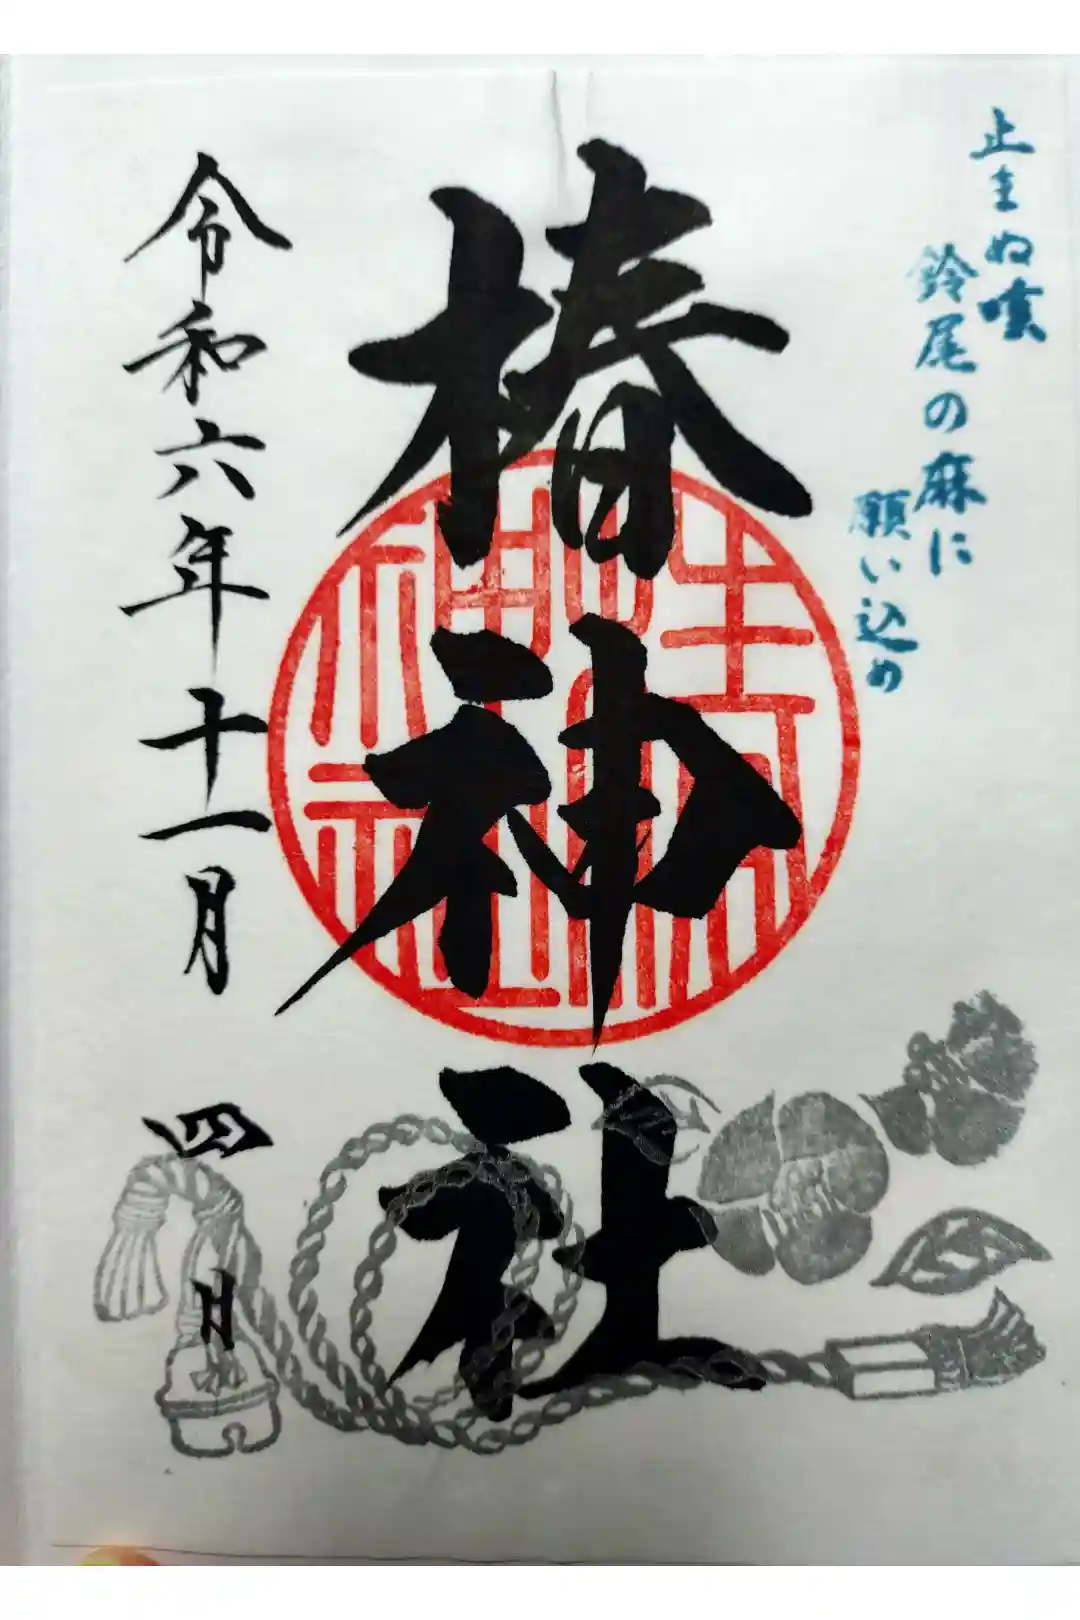 止まぬ嘆
鈴尾の麻に
願い込め
椿神社
令和六年十一月四日